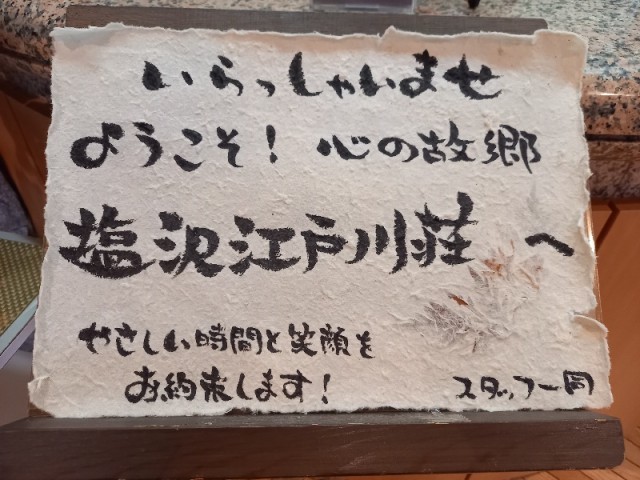 いらっしゃいませ
ようこそ! 心の故郷
塩沢江戸川荘 へ
やさしい時間と笑顔を
お約束します!
スタッフ一同